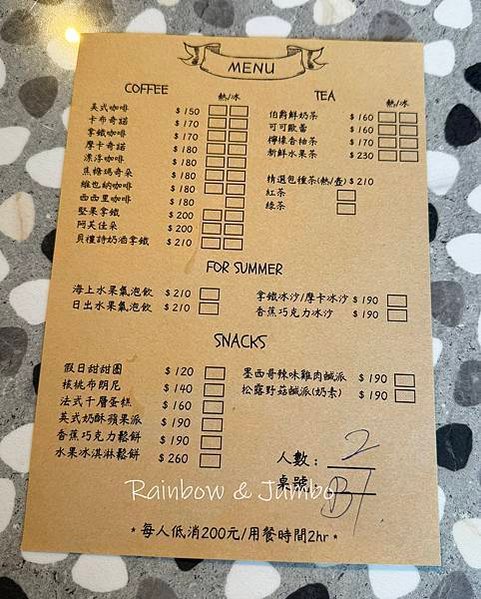 MENU
COFFEE 熱/冰
美式咖啡 $150
卡布奇諾 $170
拿鐵咖啡 $170
摩卡奇諾 $180
漂浮咖啡 $180
焦糖瑪奇朵 $180
維也納咖啡 $180
西西里咖啡 $180
堅果拿鐵 $200
阿芙佳朵 $200
貝禮詩奶酒拿鐵 $210
TEA 熱/冰
伯爵鮮奶茶 $160
可可歐蕾 $160
檸檬香柚茶 $170
新鮮水果茶 $230
精選包種茶(熱/壺) $210
紅茶
綠茶
FOR SUMMER
海上水果氣泡飲 $210
日出水果氣泡飲 $210
拿鐵冰沙/摩卡冰沙 $190
香蕉巧克力冰沙 $190
SNACKS
假日甜甜圈 $120
核桃布朗尼 $140
法式千層蛋糕 $160
英式奶酥蘋果派 $190
香蕉巧克力鬆餅 $190
水果冰淇淋鬆餅 $260
墨西哥辣味雞肉鹹派 $190
松露野菇鹹派(奶素) $190
人數: 2
桌號: B7
Rainbow & Jumbo
*每人低消200元/用餐時間2hr*